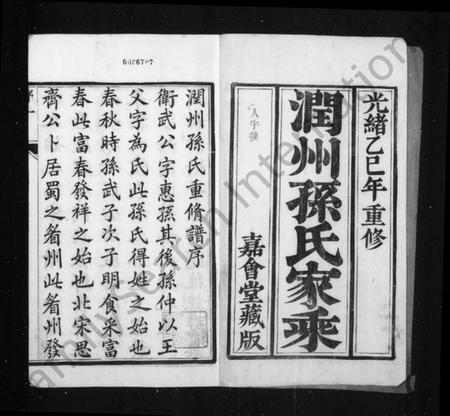 光緒乙巳年重修
潤州孫氏家乘
嘉會堂藏版
潤州孫氏重脩譜序
衛武公字惠孫其後孫仲以王
父字為氏此孫氏得姓之始也
春秋時孫武子次子明食采富
春此富春發祥之始也北宋思
齊公卜居蜀之眉州此眉州發
FamilySearch International